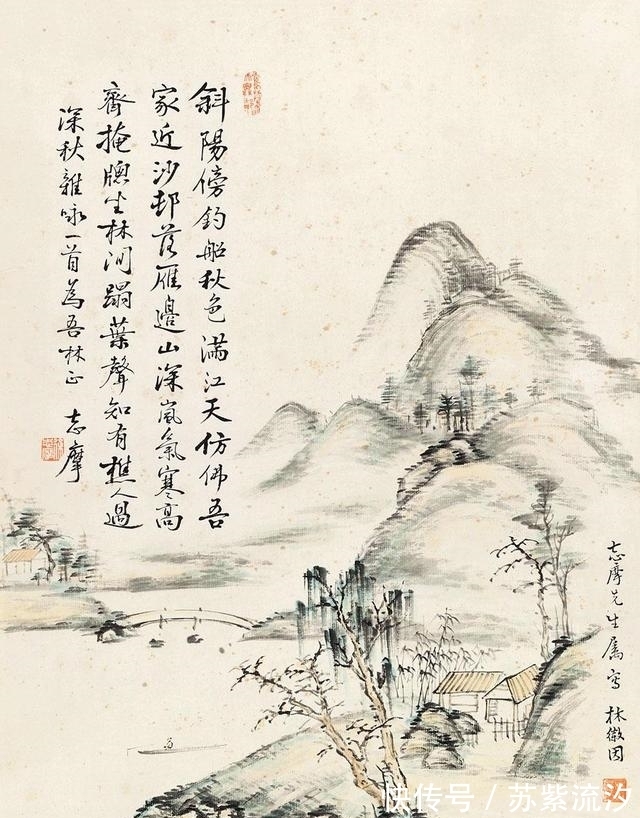 斜陽傍釣船秋色滿江天仿佛吾
家近沙邨落雁邊山深嵐氣寒高
齋掩牕坐林间蹋葉聲知有樵人過
深秋雜咏一首為吾林正 志摩
志摩先生属写 林徽因
快传号 / 苏紫流汐